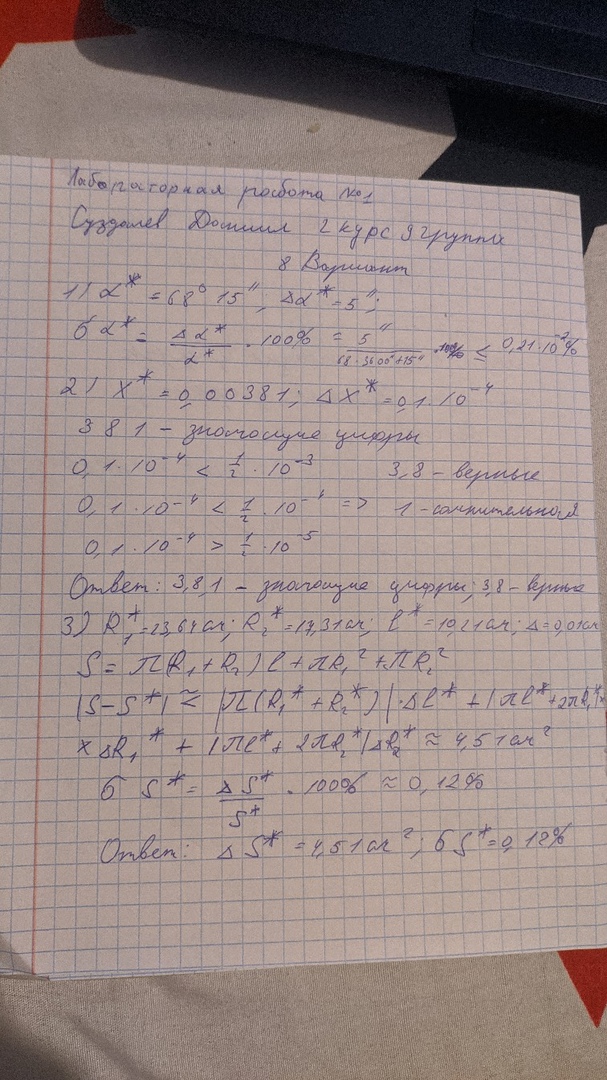 Лабораторная работа №1
Суздалев Даниил 2 курс 9 группа
8 Вариант
1) α* = 68° 15", Δα* = 5";
δα* = Δα*/α* · 100% = 5"/(68·3600"+15") · 100% ≤ 0,21·10⁻²%
2) X* = 0,00381; ΔX* = 0,1·10⁻⁴
381 – значащие цифры
0,1·10⁻⁴ < 1/2·10⁻³ 3,8 – верные
0,1·10⁻⁴ < 1/2·10⁻⁴ => 1 – сомнительная
0,1·10⁻⁴ > 1/2·10⁻⁵
Ответ: 3,8,1 – значащие цифры; 3,8 – верные
3) R₁* = 23,64см; R₂* = 17,31см; l* = 10,21см; Δ = 0,01см
S = π(R₁+R₂)l + πR₁² + πR₂²
|S–S*| ≈ |π(R₁*+R₂*)|·Δl* + |πl*+2πR₁*|×
×ΔR₁* + |πl*+2πR₂*|ΔR₂* ≈ 4,51см²
δ S* = ΔS*/S* · 100% ≈ 0,12%
Ответ: ΔS* = 4,51см²; δS* = 0,12%